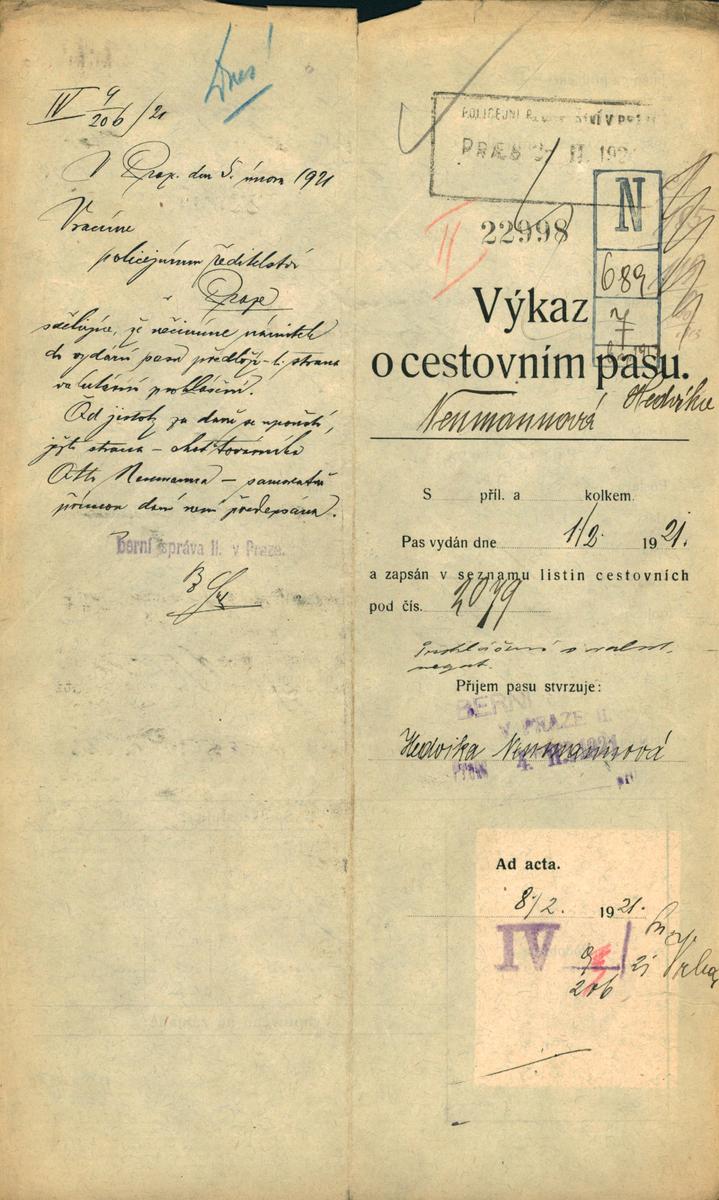 Dnes!
IV 9/206/21
V Praze den 5. února 1921
Vracíme
policejnímu ředitelství
v Praze
sdělujíce, že nečiníme námitek
do vydání pasu předloží-li strana
valutární prohlášení.
Od jistoty za daně se upouští,
jeżto strana – choť továrníka
Otto Neumanna – samostatně
přímou daní není předepsána.
Berní správa II. v Praze.
POLICEJNÍ ŘEDITELSTVÍ V PRAZE
PRÆS II. 1921
II
22998
N
689
7
Výkaz
o cestovním pasu.
Neumannová Hedvika
S příl. a kolkem.
Pas vydán dne 1/2. 1921.
a zapsán v seznamu listin cestovních
pod čís. 2079
Příjem pasu stvrzuje:
BERNÍ
V PRAZE II.
4. II. 1921
Hedvika Neumannová
Ad acta.
8/2. 1921.
IV 9/206 21